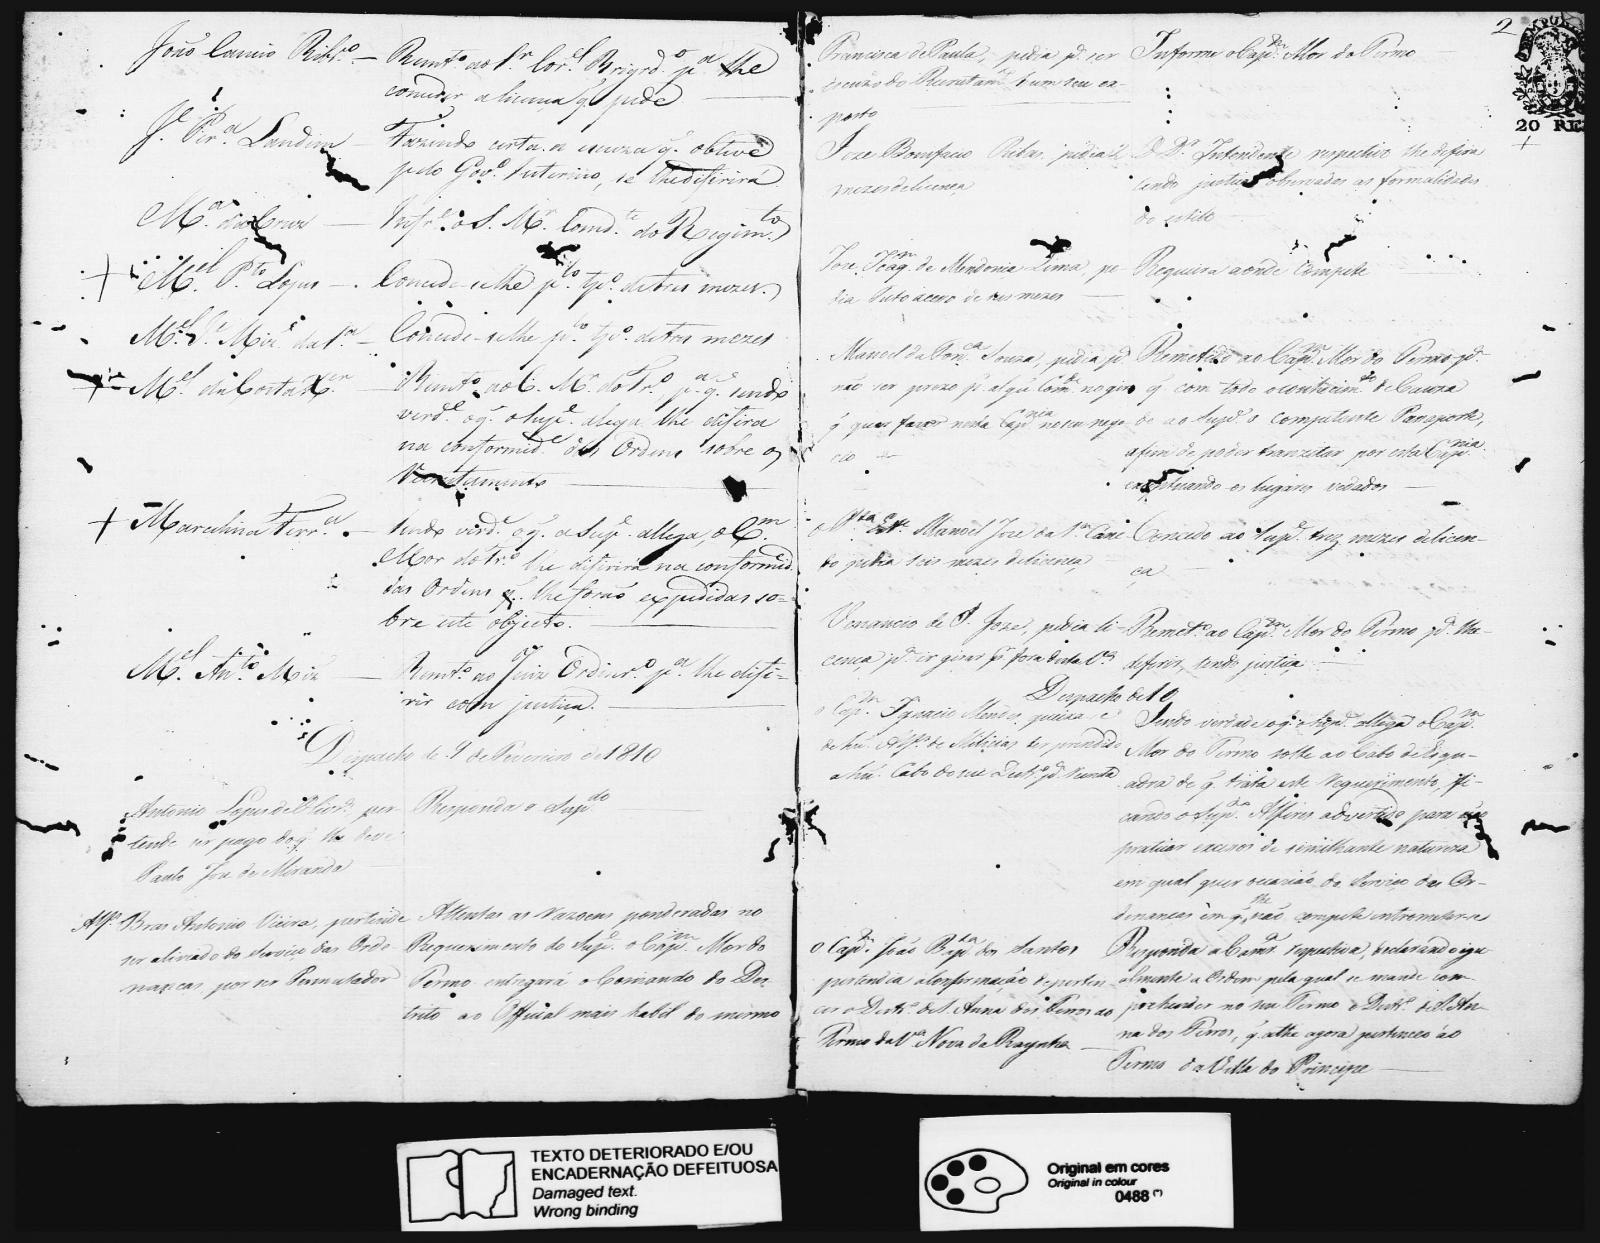 João Ribr.o — Remt.o ao Sr. Cor.el Brigrd.o p.a lhe
conceder a licença q. pede
Landim — Fazendo certa a q. obteve
pelo Gov.o Interino, se lhe disirirá
M.a da Cruz — Infr.e o S. M.r Comd.te do Regim.to
M.el P.to Lopes — Concede-selhe p.r tpo. de tres mezes
M.el — Concede-selhe p.r tpo. de tres mezes
M.el da Costa — Remt.o ao C. M. do Tr.o p.a q. sendo
verd.e o q. o Sup.e alega lhe disira
na conformid.e das Ordens sobre os
Recrutamento
Marcelina Ferr.a — Sendo verd.e o q. a Sup.e allega, o C.m
Mor do Tr.o lhe disirirá na conformid.
das Ordens q. lhe forão expedidas so=
bre este objecto.
M.el An.to — Remt.o ao Juiz Ordinr.o p.a lhe disi=
rir com justiça.
Despacho de 9 de Fevereiro de 1810
Antonio Lopes de per-
tende ser pago do q. lhe deve
Paulo Joze de Miranda
Responda o Sup.do
Alf.s Bras Antonio Vieira, pertende
ser aliviado do serviço das Orde-
nanças, por ser Permutador
Attentas as Razoens ponderadas no
Requerimento do Sup.e o Cap.m Mor do
Termo entregará o Comando do Des-
trito ao Official mais habil do mesmo
2
20 RE
Francisca de Paula, pedia p.a ser
escuzo do Recrutam.to hum seu ex-
posto
Informe o Cap.m Mor do Termo
Joze Bonifacio Ribas, pedia
mezes de licença
O D.r Intendente respectivo lhe disira
tendo justiça observadas as formalidades
do estilo
Joze Joaq.m de Mendonia Lima, pe-
dia de tres mezes
Requeira aonde Compete
Manoel da Souza, pedia p.a
não ser prezo p.r algũ Com.de no giro
q. quer fazer nesta Cap.nia no seu nego-
cio
Remetido ao Cap.m Mor do Termo p.a
q. com todo o conhecim.to de Cauza
de ao Sup.e o competente Passaporte,
afim de poder tranzitar por esta Cap.nia
exceptuando os lugares vedados
Manoel Joze da
pedia seis mezes de licença
Concedo ao Sup.e trez mezes de licen-
ça
Venancio de S. Joze, pedia li-
cença p.a ir girar p.r fora desta
Remet.o ao Cap.m Mor do Termo p.a lhe
deferir, tendo justiça
Despacho de 10
o Cap.m Ignacio Mendes, queixa-se
de hũ Alf.s de Milicias ter prendido
a hũ Cabo do seu Destr.o
Sendo verdade o q. o Sup.e allega o Cap.m
Mor do Termo solte ao Cabo de Esqua-
adra de q. trata este Requerimento, fi-
cando o Sup.do Alferes advertido para não
praticar excesos de similhante natureza
em qual quer ocazião do Serviço das Or-
denances em q. lhe não compete intrometer-se
O Cap.m João Bap.ta dos Santos
pertendia a confirmação de perten-
cer o Destr.o de S. Anna dos Ferros ao
Termo da V.a Nova da Raynha
Responda a Camr.a respectiva, declarando igu-
almente a Ordem pela qual se mande com
prehender no seu Termo o Destr.o de S. An-
na dos Ferros, q. athe agora pertenceo ao
Termo da Villa do Principe
TEXTO DETERIORADO E/OU
ENCADERNAÇÃO DEFEITUOSA
Damaged text.
Wrong binding
Original em cores
Original in colour
0488 (*)